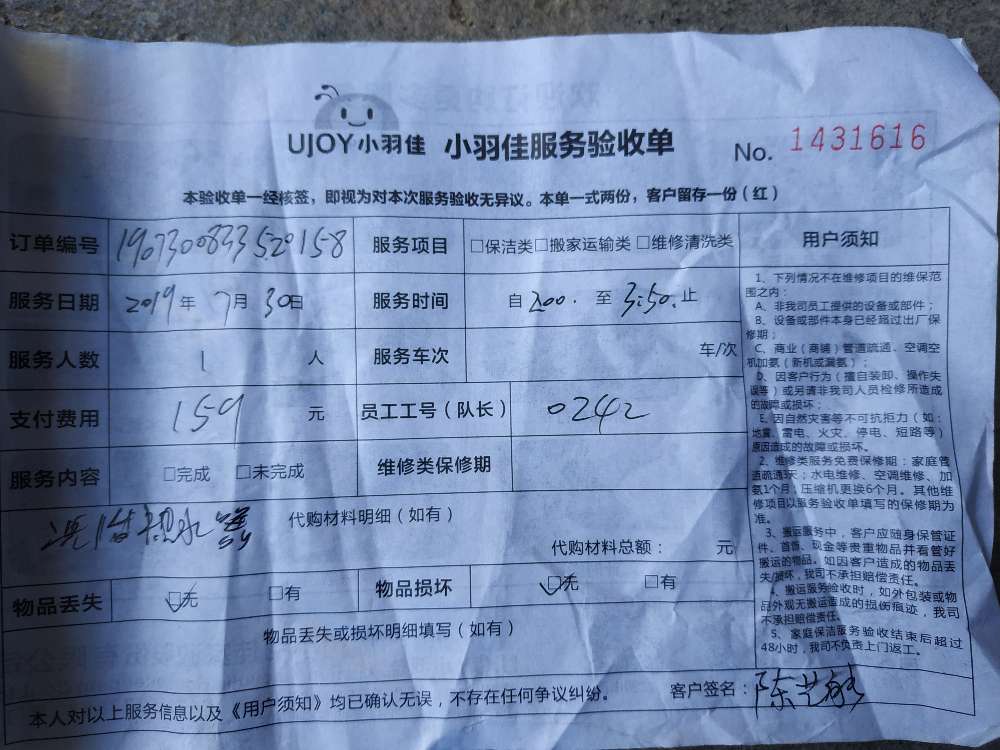 UJOY小羽佳 小羽佳服务验收单 No. 1431616
本验收单一经核签，即视为对本次服务验收无异议。本单一式两份，客户留存一份（红）
订单编号 1907300833520158 服务项目 □保洁类□搬家运输类 □维修清洗类
服务日期 2019年 7月 30日 服务时间 自 2:00. 至 3:50.止
服务人数 1 人 服务车次 车/次
支付费用 159 元 员工工号（队长） 0242
服务内容 □完成 □未完成 维修类保修期
代购材料明细（如有）
代购材料总额： 元
物品丢失 ☑无 □有 物品损坏 ☑无 □有
物品丢失或损坏明细填写（如有）
本人对以上服务信息以及《用户须知》均已确认无误，不存在任何争议纠纷。 客户签名：
用户须知
1、下列情况不在维修项目的维保范
围之内：
A、非我司员工提供的设备或部件；
B、设备或部件本身已经超过出厂保
修期；
C、商业（商铺）管道疏通、空调空
机加氨（新机或漏氨）；
D、因客户行为（擅自装卸、操作失
误等）或另请非我司人员检修所造成
的故障或损坏；
E、因自然灾害等不可抗拒力（如：
地震、雷电、火灾、停电、短路等）
原因造成的故障或损坏。
2、维修类服务免费保修期：家庭管
道疏通3天；水电维修、空调维修、加
氨1个月；压缩机更换6个月。其他维
修项目以服务验收单填写的保修期为
准。
3、搬运服务中，客户应随身保管证
件、首饰、现金等贵重物品并看管好
搬运的物品。如因客户造成的物品丢
失/损坏，我司不承担赔偿责任。
4、搬运服务验收时，如外包装或物
品外观无搬运造成的损伤痕迹，我司
不承担赔偿责任。
5、家庭保洁服务验收结束后超过
48小时，我司不负责上门返工。